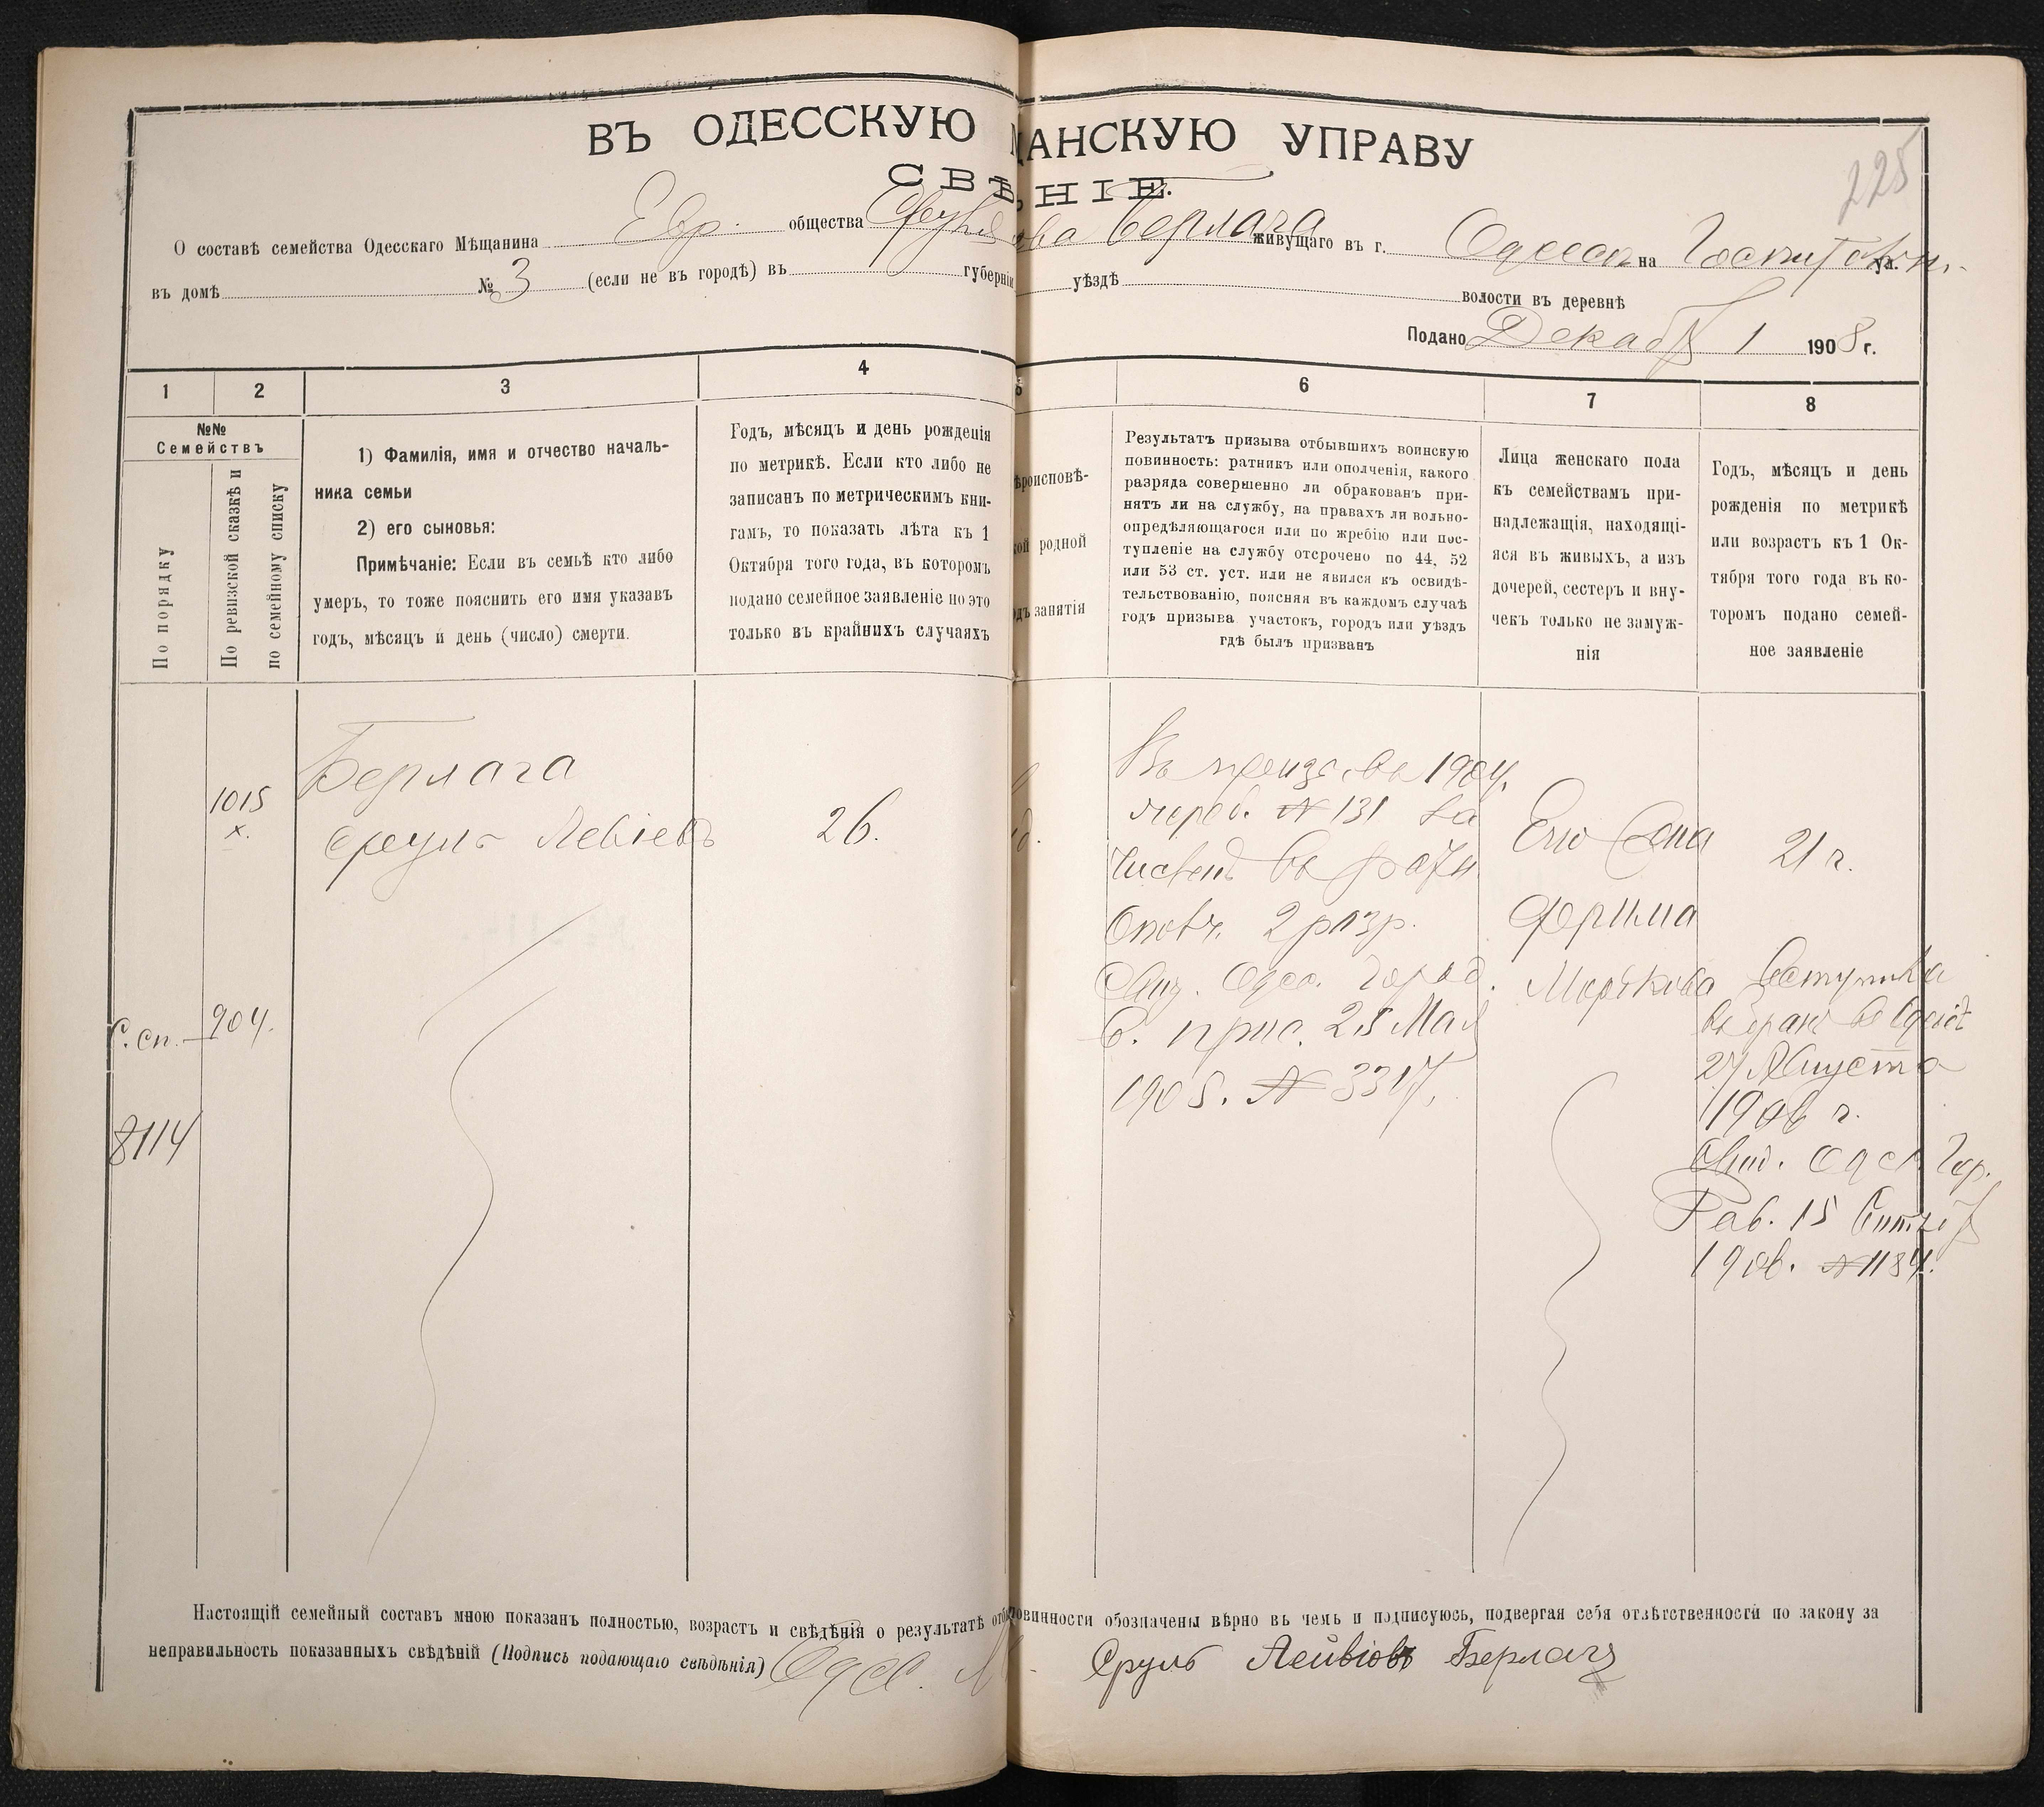 ВЪ ОДЕССКУЮ ЩАНСКУЮ УПРАВУ
225
СВѢ ѢНІЕ.
О составѣ семейства Одесскаго Мѣщанина Евр. общества Сруля Берлага живущаго въ г. Одесса на Госпитальн. ул.
въ домѣ № 3 (если не въ городѣ) въ губерніи уѣздѣ волости въ деревнѣ
Подано Декабр 1 1908 г.
1 2 3 4 5 6 7 8
№№
Семействъ
По порядку
По ревизской сказкѣ и
по семейному списку
1) Фамилія, имя и отчество началь-
ника семьи
2) его сыновья:
Примѣчаніе: Если въ семьѣ кто либо
умеръ, то тоже пояснить его имя указавъ
годъ, мѣсяцъ и день (число) смерти.
Годъ, мѣсяцъ и день рожденія
по метрикѣ. Если кто либо не
записанъ по метрическимъ кни-
гамъ, то показать лѣта къ 1
Октября того года, въ которомъ
подано семейное заявленіе но это
только въ крайнихъ случаяхъ
ѣроисповѣ-
кой родной
одъ занятія
Результатъ призыва отбывшихъ воинскую
повинность: ратникъ или ополченія, какого
разряда совершенно ли обракованъ при-
нятъ ли на службу, на правахъ ли вольно-
опредѣляющагося или по жребію или пос-
тупленіе на службу отсрочено по 44, 52
или 53 ст. уст. или не явился къ освидѣ-
тельствованію, поясняя въ каждомъ случаѣ
годъ призыва участокъ, городъ или уѣздъ
гдѣ былъ призванъ
Лица женскаго пола
къ семействамъ при-
надлежащія, находящі-
яся въ живыхъ, а изъ
дочерей, сестеръ и вну-
чекъ только не замуж-
нія
Годъ, мѣсяцъ и день
рожденія по метрикѣ
или возрастъ къ 1 Ок-
тября того года въ ко-
торомъ подано семей-
ное заявленіе
1015
х.
С. сп. 904.
8114
Берлага
Сруль Левіевъ
26.
Въ призывѣ 1904.
жереб. № 131 за
числен въ ратн
Опол. 2 разр.
Одес. Город.
В. прис. 25 Мая
1905. № 3317.
Его жена
Фрима
Моршкова
21 г.
Вступила
въ бракъ въ Одессѣ
27 Августа
1906 г.
Свид. Одес. Гор.
Рав. 15 Сентяб
1906. № 1184.
Настоящій семейный составъ мною показанъ полностью, возрастъ и свѣдѣнія о результатѣ отб повинности обозначены вѣрно въ чемъ и подписуюсь, подвергая себя отвѣтственности по закону за
неправильность показанныхъ свѣдѣній (Подпись подающаго свѣдѣнія) Одес. М. Сруль Лейвіовъ Берлага